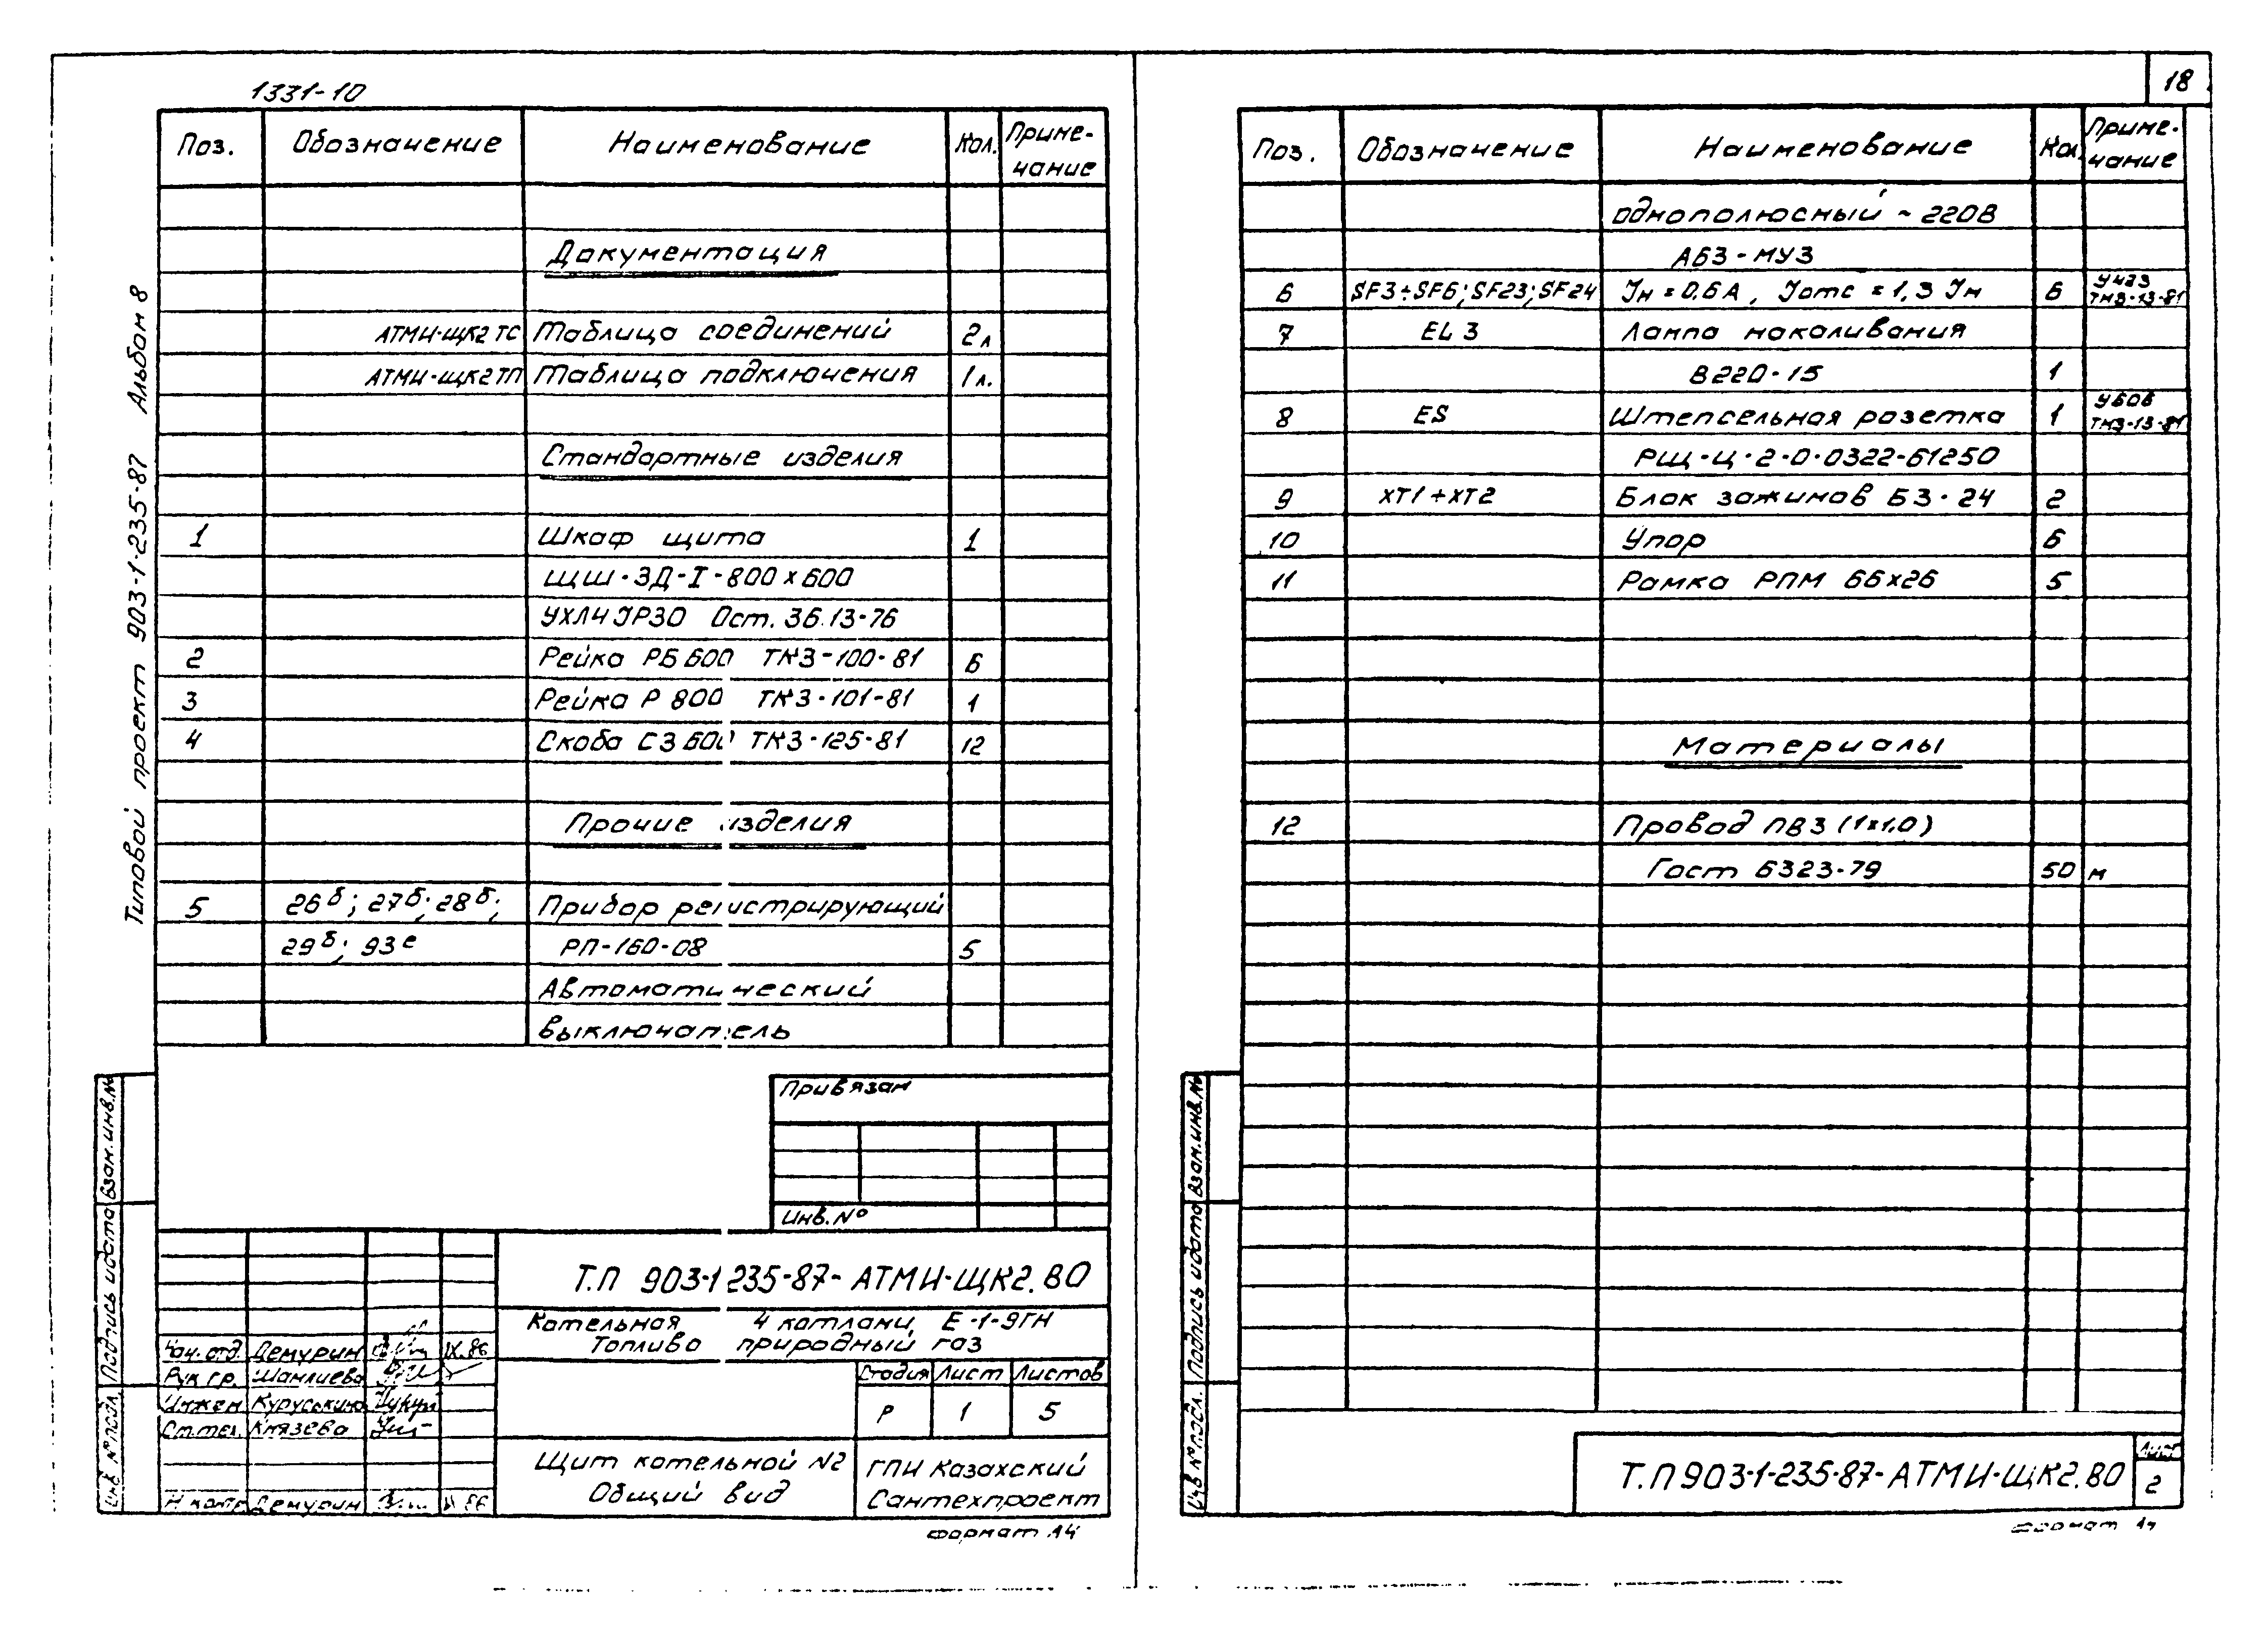 1331-10
Типовой проект 903-1-235-87 Альбом 8
Поз. Обозначение Наименование Кол. Приме-
чание
Документация
АТМИ-ЩК2 ТС Таблица соединений 2л
АТМИ-ЩК2 ТП Таблица подключения 1л.
Стандартные изделия
1 Шкаф щита 1
ЩШ-ЗД-I-800х600
УХЛ4 IP30 Ост. 36.13-76
2 Рейка РБ 600 ТК3-100-81 6
3 Рейка Р 800 ТК3-101-81 1
4 Скоба С3 600 ТК3-125-81 12
Прочие изделия
5 26б; 27б; 28б; Прибор регистрирующий
29б; 93е РП-160-08 5
Автоматический
выключатель
Привязан
Инв. №
Т.П 903-1-235-87-АТМИ-ЩК2.ВО
Котельная 4 котлами Е-1-9ГН
Топливо природный газ
Нач. отд. Демурин IX.86
Рук гр. Шамлиева
Инжен Курускина
Ст.тех. Князева
Н.контр Демурин IX 86
Стадия Лист Листов
Р 1 5
Щит котельной №2
Общий вид
ГПИ Казахский
Сантехпроект
Взам.инв.№
Подпись и дата
Инв № подл.
Формат А4
18
Поз. Обозначение Наименование Кол. Приме-
чание
однополюсный ~ 220В
АБ3-МУ3
6 SF3÷SF6; SF23; SF24 Iн = 0,6А, Iотс = 1,3 Iн 6 У423
ТМ3-13-81
7 EL3 Лампа накаливания
В220-15 1
8 ES Штепсельная розетка 1 У606
ТМ3-13-81
РЩ-Ц-2-0-0322-61250
9 ХТ1÷ХТ2 Блок зажимов БЗ-24 2
10 Упор 6
11 Рамка РПМ 66х26 5
Материалы
12 Провод ПВ3 (1х1,0)
Гост 6323-79 50 м
Взам.инв.№
Подпись и дата
Инв № подл.
Т.П 903-1-235-87-АТМИ-ЩК2.ВО
Лист
2
Формат А4